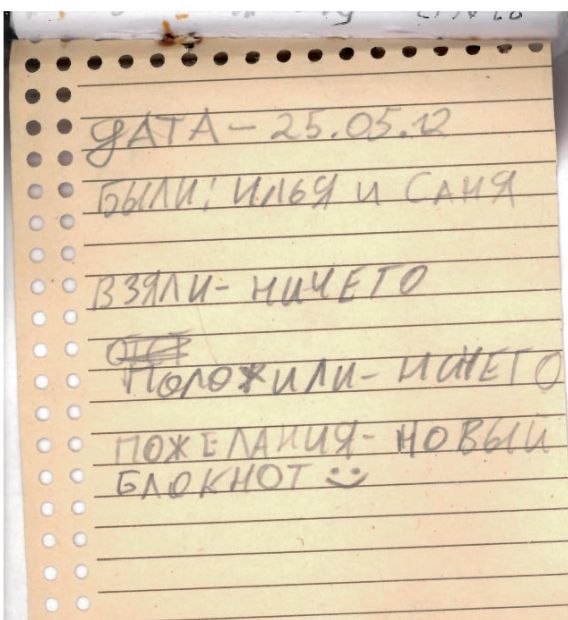 ДАТА - 25.05.12
БЫЛИ: ИЛЬЯ И САНЯ
ВЗЯЛИ - НИЧЕГО
ПОЛОЖИЛИ - НИЧЕГО
ПОЖЕЛАНИЯ - НОВЫЙ
БЛОКНОТ